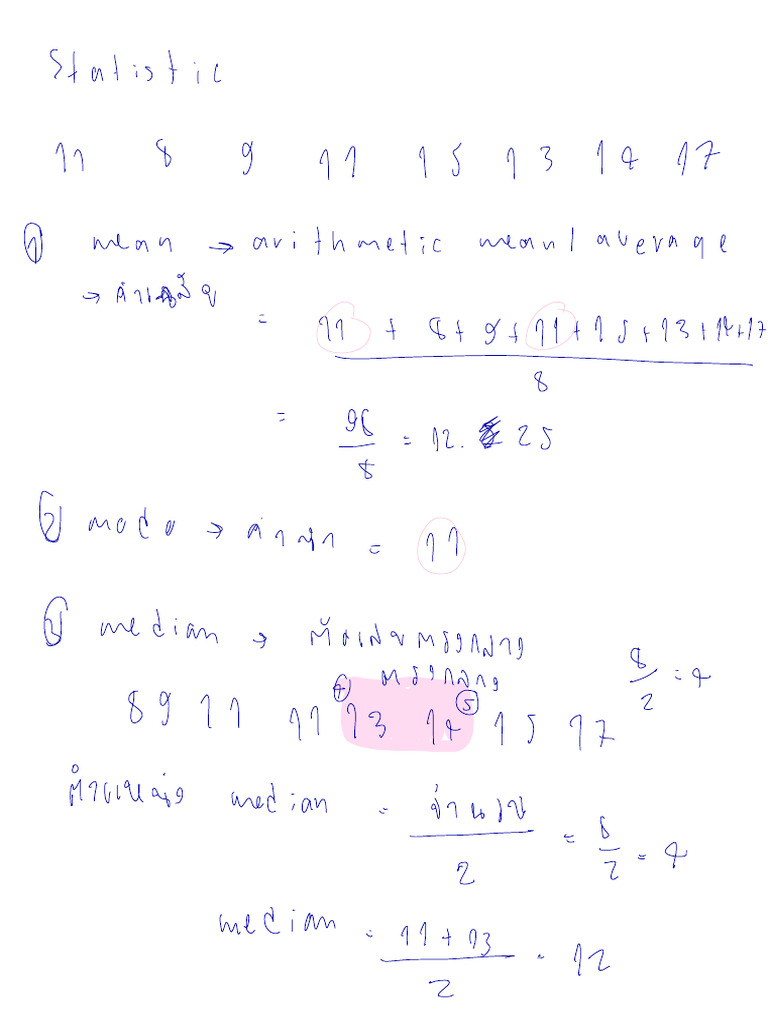 Statistic
11 8 9 11 15 13 14 17
① mean → arithmetic mean / average
→ ค่าเฉลี่ย
= 11 + 8 + 9 + 11 + 15 + 13 + 14 + 17
8
= 98
8
= 12.25
② mode → ค่าซ้ำ = 11
③ median → ตัวเลขตรงกลาง
ตรงกลาง
8
2
= 4
④ ⑤
8 9 11 11 13 14 15 17
ตำแหน่ง median = จำนวน
2
= 8
2
= 4
median = 11 + 13
2
= 12